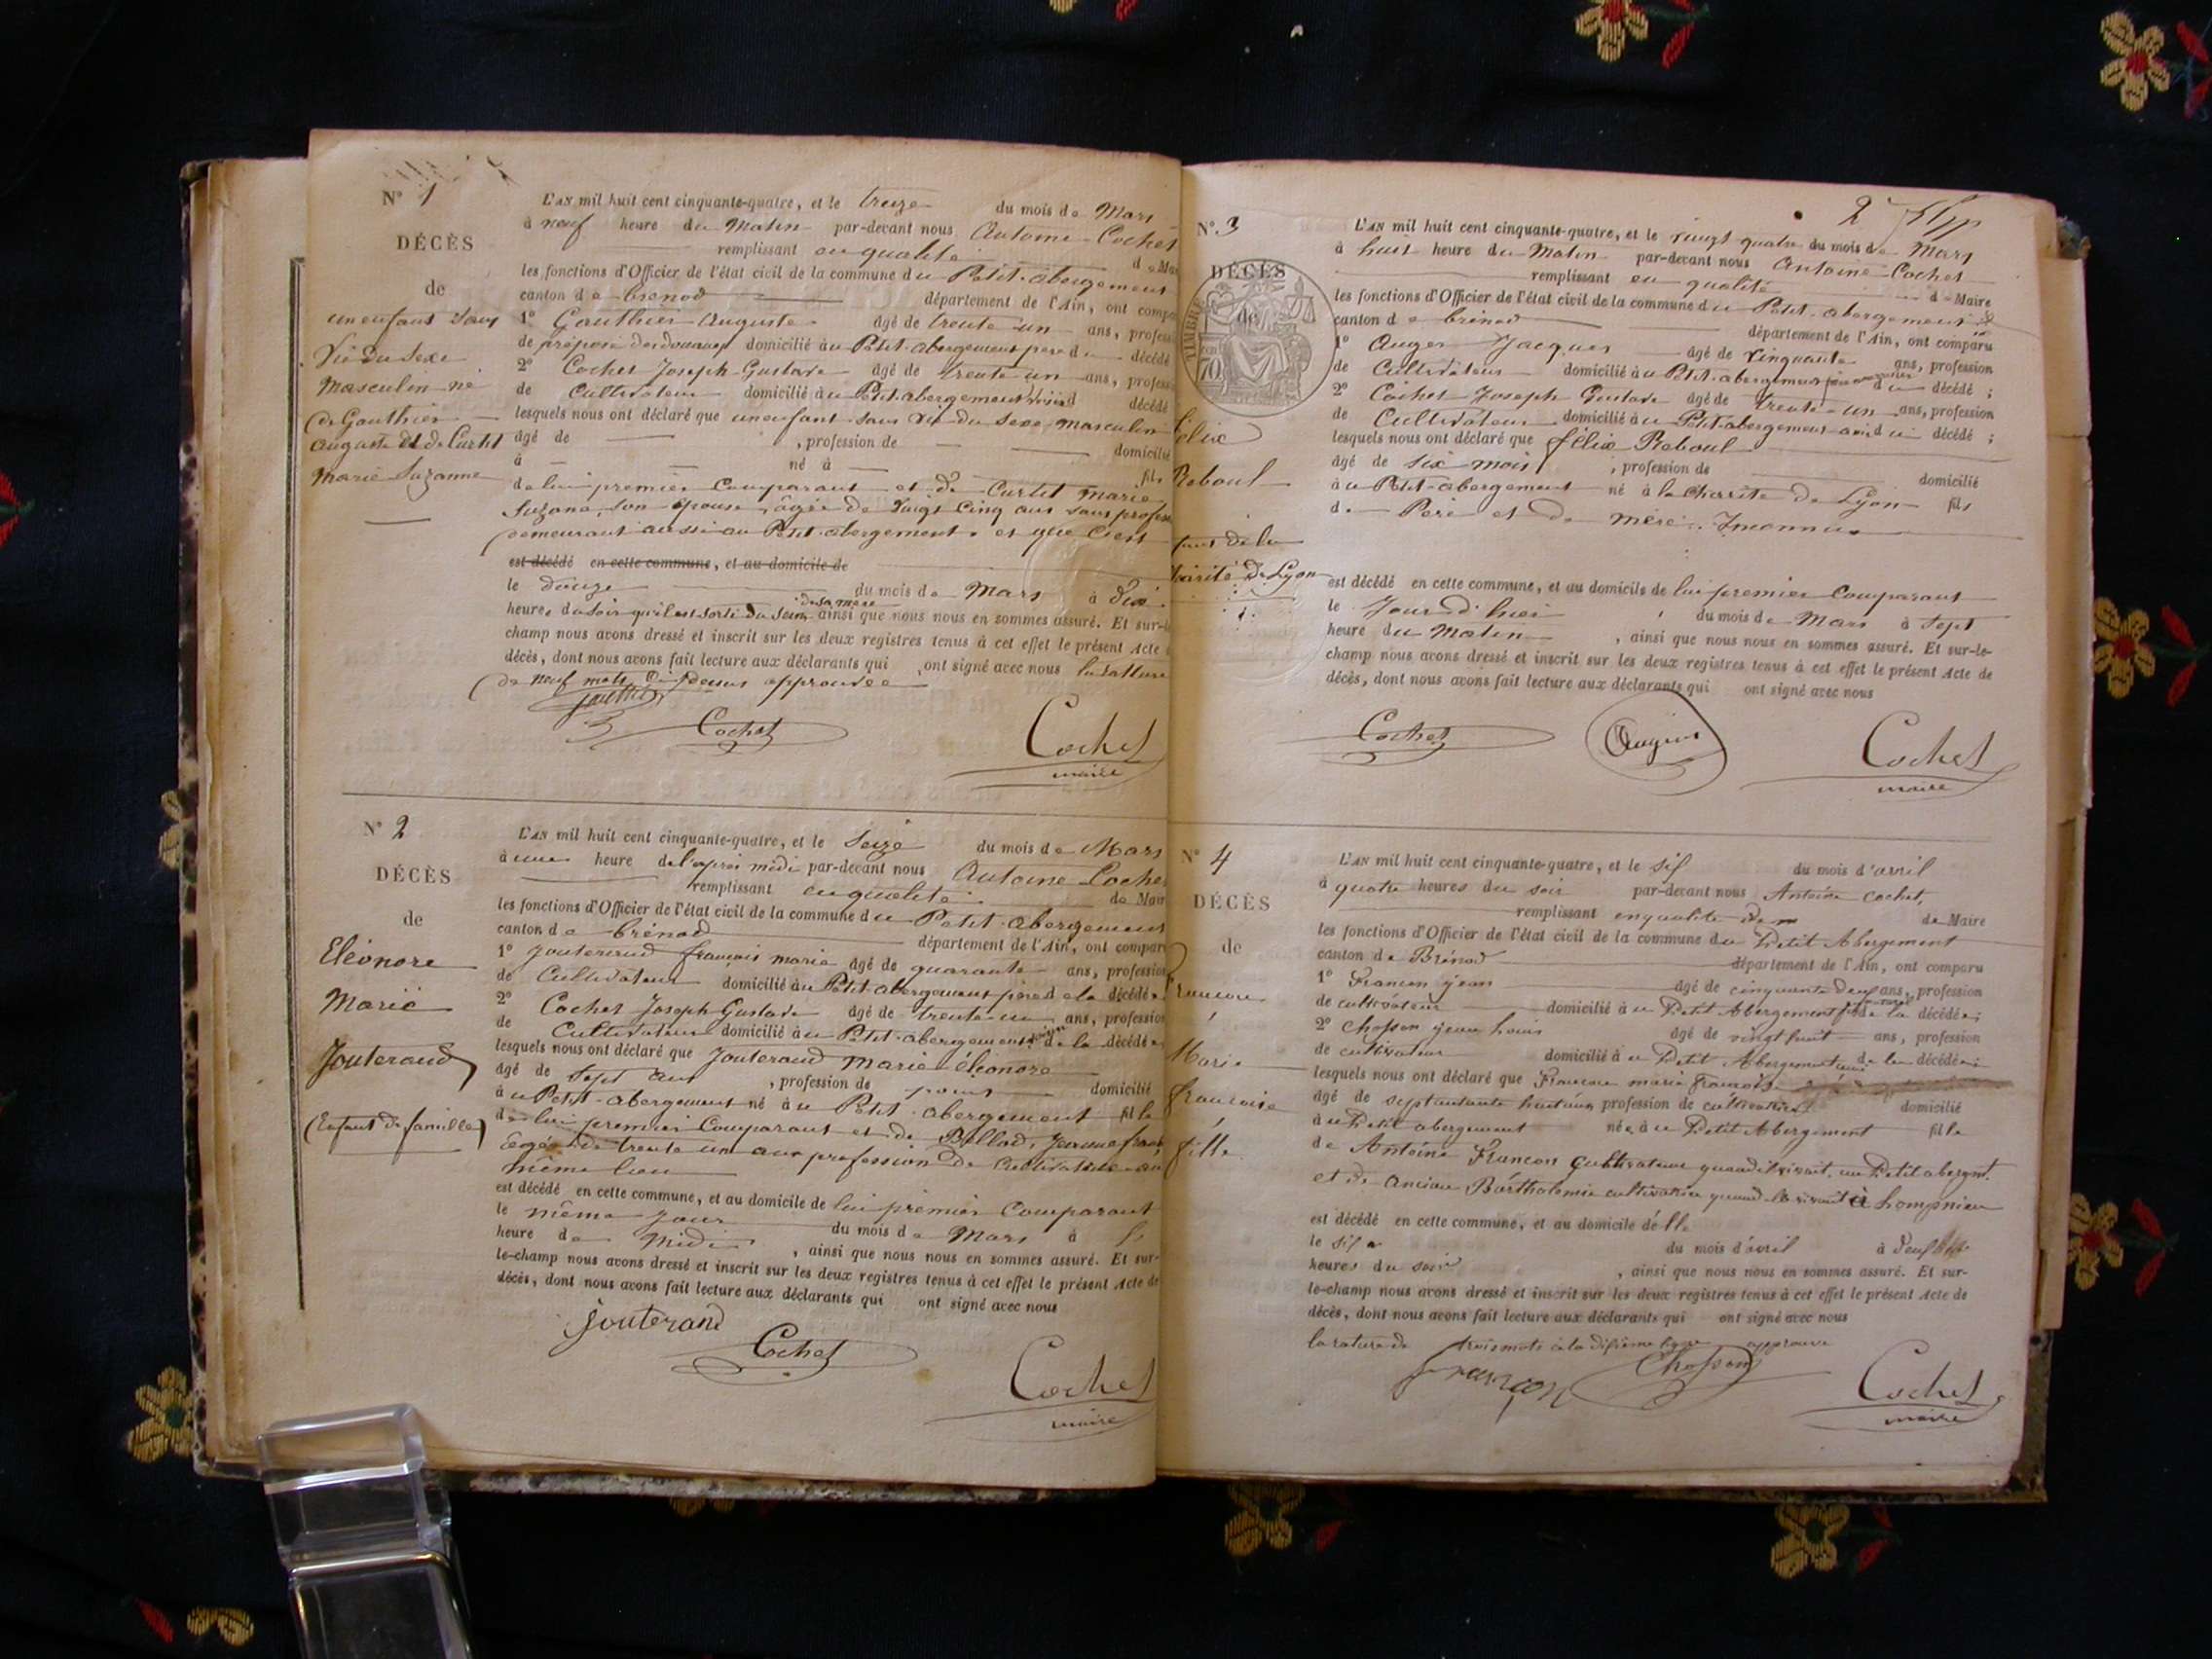 N° 1
DÉCÈS
de
un enfant sans
Vie du Sexe
Masculin né
de Gauthier
Auguste et de Curtet
Marie Suzanne
L'AN mil huit cent cinquante-quatre, et le treize du mois de Mars
à neuf heure du Matin par-devant nous Antoine Cochet
remplissant en qualité de Mai
les fonctions d'Officier de l'état civil de la commune du Petit-abergement
canton de brenod département de l'Ain, ont compa
1° Gauthier Auguste âgé de trente un ans, profess
de préposé des douanes domicilié au Petit-abergement père du décédé
2° Cochet Joseph Gustave âgé de trente un ans, profess
de Cultivateur domicilié au Petit-abergement voisin d décédé
lesquels nous ont déclaré que un enfant sans vie du Sexe masculin
âgé de , profession de domicilié
à né à fils
de lui premier Comparant et de Curtet marie
Suzane, son épouse, âgée de Vingt Cinq ans sans profess
demeurant aussi au Petit-abergement et que C'est
est décédé en cette commune, et au domicile de
le douze du mois de Mars à dix
heure du Soir qu'il est sorti du Sein de sa mère ainsi que nous nous en sommes assuré. Et sur-le-
champ nous avons dressé et inscrit sur les deux registres tenus à cet effet le présent Acte
décès, dont nous avons fait lecture aux déclarants qui ont signé avec nous la rature
de neuf mots Ci dessus approuvée
Gauthier
Cochet
Cochet
maire
N° 2
DÉCÈS
de
Eléonore
Marie
Jouterand
(Enfant de famille)
L'AN mil huit cent cinquante-quatre, et le Seize du mois de Mars
à une heure de l'après midi par-devant nous Antoine Coche
remplissant en qualité de Mair
les fonctions d'Officier de l'état civil de la commune du Petit-abergement
canton de brénod département de l'Ain, ont compar
1° Jouterand françois marie âgé de quarante ans, profession
de Cultivateur domicilié au Petit-abergement père de la décédée
2° Cochet Joseph Gustave âgé de trente-un ans, profession
de Cultivateur domicilié au Petit-abergement voisin de la décédée
lesquels nous ont déclaré que Jouterand Marie éléonore
âgé de Sept ans , profession de domicilié
au Petit-abergement né au Petit-abergement fille
de lui premier Comparant et de Jeanne
âgée de trente un ans profession de Cultivatrice au
même lieu
est décédé en cette commune, et au domicile de lui premier Comparant
le même jour du mois de Mars à
heure de Midi , ainsi que nous nous en sommes assuré. Et sur-
le-champ nous avons dressé et inscrit sur les deux registres tenus à cet effet le présent Acte de
décès, dont nous avons fait lecture aux déclarants qui ont signé avec nous
Jouterand
Cochet
Cochet
maire
2
N° 3
DÉCÈS
de
TIMBRE
70
félix
Reboul
de la
Charité de Lyon
L'AN mil huit cent cinquante-quatre, et le vingt quatre du mois de Mars
à huit heure du Matin par-devant nous Antoine Cochet
remplissant en qualité de Maire
les fonctions d'Officier de l'état civil de la commune du Petit-abergement
canton de brénod département de l'Ain, ont comparu
1° Auger Jacques âgé de cinquante ans, profession
de Cultivateur domicilié au Petit-abergement père nourricier du décédé ;
2° Cochet Joseph Gustave âgé de trente-un ans, profession
de Cultivateur domicilié au Petit-abergement ami du décédé ;
lesquels nous ont déclaré que félix Reboul
âgé de six mois , profession de domicilié
au Petit-abergement né à la Charité de Lyon fils
de Père et de mère Inconnus
est décédé en cette commune, et au domicile de lui premier Comparant
le Jour d'hier du mois de Mars à Sept
heure du Matin , ainsi que nous nous en sommes assuré. Et sur-le-
champ nous avons dressé et inscrit sur les deux registres tenus à cet effet le présent Acte de
décès, dont nous avons fait lecture aux déclarants qui ont signé avec nous
Cochet
Cochet
maire
N° 4
DÉCÈS
de
françon
Marie
françoise
fille
L'AN mil huit cent cinquante-quatre, et le six du mois d'avril
à quatre heures du soir par-devant nous Antoine Cochet,
remplissant en qualité de Maire
les fonctions d'Officier de l'état civil de la commune du Petit Abergement
canton de Brénod département de l'Ain, ont comparu
1° Francon jean âgé de cinquante deux ans, profession
de cultivateur domicilié au Petit Abergement de la décédée;
2° Chosson jean louis âgé de vingt huit ans, profession
de cultivateur domicilié au Petit Abergement ami de la décédée;
lesquels nous ont déclaré que Francon marie françoise
âgé de septantante huit ans profession de cultivatrice domicilié
au Petit abergement née au Petit Abergement fille
de Antoine Francon Cultivateur quand il vivait, au Petit abergmt.
et de ancian Barthelemie cultivatrice quand elle vivait à hompnieu
est décédé en cette commune, et au domicile d'elle
le six du mois d'avril à deux
heures du soir , ainsi que nous nous en sommes assuré. Et sur-
le-champ nous avons dressé et inscrit sur les deux registres tenus à cet effet le présent Acte de
décès, dont nous avons fait lecture aux déclarants qui ont signé avec nous
la rature de trois mots à la dixième ligne approuvé
françon
Chosson
Cochet
maire